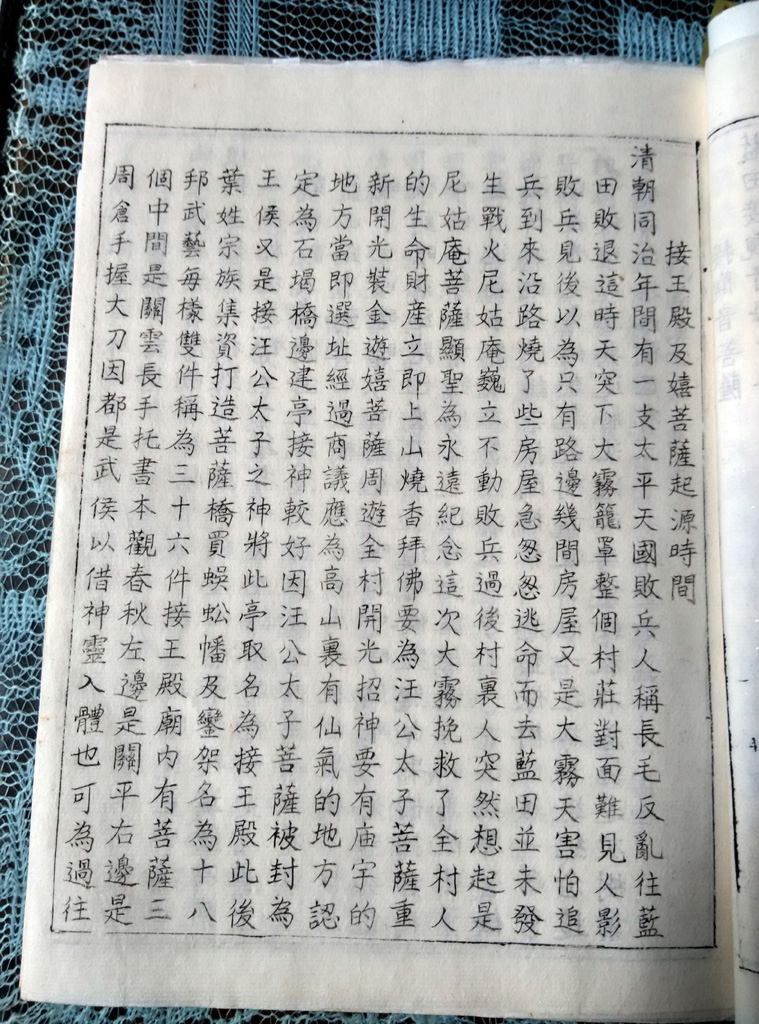 接王殿及嬉菩薩起源時間
清朝同治年間有一支太平天國敗兵人稱長毛反亂往藍
田敗退這時天突下大霧籠罩整個村莊對面難見人影
敗兵見後以為只有路邊幾間房屋又是大霧天害怕追
兵到來沿路燒了些房屋急怱怱逃命而去藍田並未發
生戰火尼姑庵巍立不動敗兵過後村裏人突然想起是
尼姑庵菩薩顯聖為永遠紀念這次大霧挽救了全村人
的生命財產立即上山燒香拜佛要為汪公太子菩薩重
新開光裝金遊嬉菩薩周遊全村開光招神要有庙宇的
地方當即選址經過商議應為高山裏有仙氣的地方認
定為石堨橋邊建亭接神較好因汪公太子菩薩被封為
王侯又是接汪公太子之神將此亭取名為接王殿此後
葉姓宗族集資打造菩薩橋買蜈蚣幡及鑾架名為十八
邦武藝每樣雙件稱為三十六件接王殿廟內有菩薩三
個中間是關雲長手托書本觀春秋左邊是關平右邊是
周倉手握大刀因都是武侯以借神靈入體也可為過往